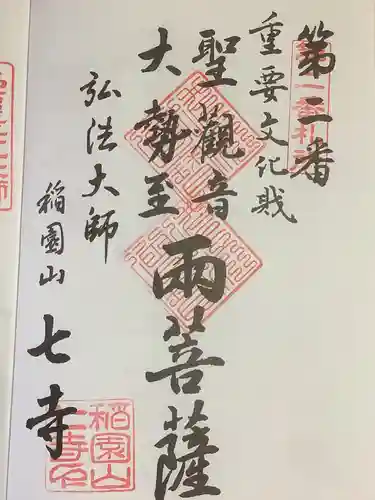 第二番
重要文化財
聖觀音
大勢至
兩菩薩
弘法大師
稲園山
七寺
稲園山
七寺印